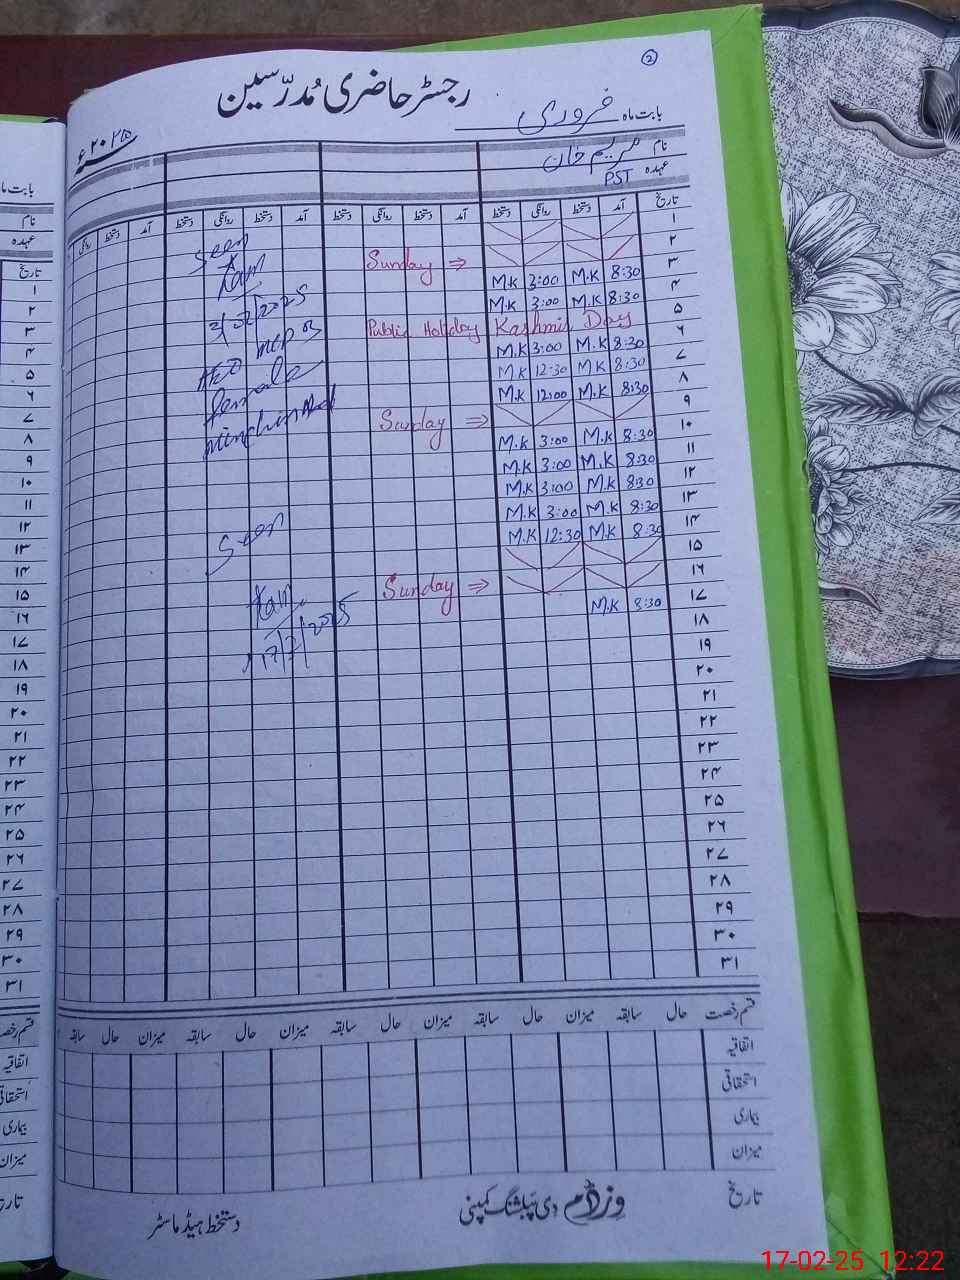 2
رجسٹر حاضری مُدرّسین
بابت ماہ فروری
۲۰۲۵ء
نام مریم خان
عہدہ PST
تاریخ آمد دستخط روانگی دستخط آمد دستخط روانگی دستخط آمد دستخط روانگی دستخط آمد دستخط روانگی
۱
۲ Sunday ⇒
۳ 8:30 M.K 3:00 M.K
۴ 8:30 M.K 3:00 M.K
۵ Public Holiday Kashmir Day
۶ 8:30 M.K 3:00 M.K
۷ 8:30 M.K 12:30 M.K
۸ 8:30 M.K 12:00 M.K
۹ Sunday ⇒
۱۰ 8:30 M.K 3:00 M.K
۱۱ 8:30 M.K 3:00 M.K
۱۲ 8:30 M.K 3:00 M.K
۱۳ 8:30 M.K 3:00 M.K
۱۴ 8:30 M.K 12:30 M.K
۱۵
۱۶ Sunday ⇒
۱۷ 8:30 M.K
۱۸
۱۹
۲۰
۲۱
۲۲
۲۳
۲۴
۲۵
۲۶
۲۷
۲۸
۲۹
۳۰
۳۱
Seen
3/02/2025
AEO
female
Seen
17/2/2025
قسم رخصت حال سابقہ میزان حال سابقہ میزان حال سابقہ میزان حال سابقہ میزان حال سابقہ
اتفاقیہ
استحقاقی
بیماری
میزان
تاریخ
وزڈم دی پبلشنگ کمپنی
دستخط ہیڈ ماسٹر
بابت ماہ
نام
عہدہ
تاریخ
۱
۲
۳
۴
۵
۶
۷
۸
۹
۱۰
۱۱
۱۲
۱۳
۱۴
۱۵
۱۶
۱۷
۱۸
۱۹
۲۰
۲۱
۲۲
۲۳
۲۴
۲۵
۲۶
۲۷
۲۸
۲۹
۳۰
۳۱
اتفاقیہ
بیماری
میزان
17-02-25 12:22